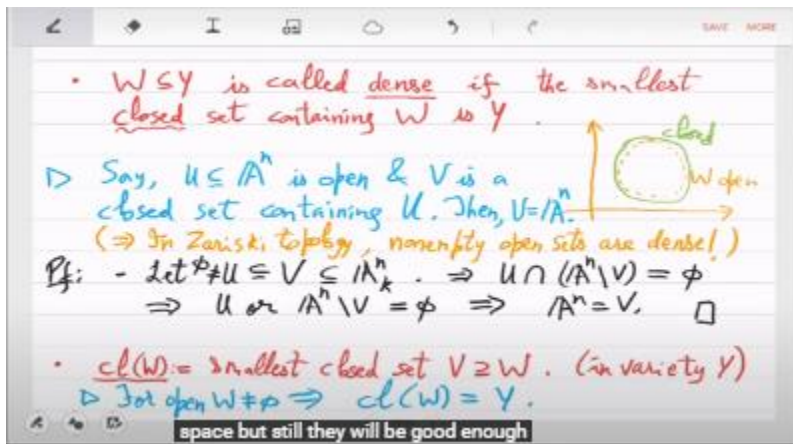 SAVE MORE
• W ⊆ Y is called dense if the smallest
closed set containing W is Y.
closed
W open
▷ Say, U ⊆ A^n is open & V is a
closed set containing U. Then, V = A^n.
(⇒ In Zariski topology, nonempty open sets are dense!)
Pf: - Let φ ≠ U ⊆ V ⊆ A^n_k. ⇒ U ∩ (A^n \ V) = φ
⇒ U or A^n \ V = φ ⇒ A^n = V. □
• cl(W) := smallest closed set V ⊇ W. (in variety Y)
▷ For open W ≠ φ ⇒ cl(W) = Y.
space but still they will be good enough